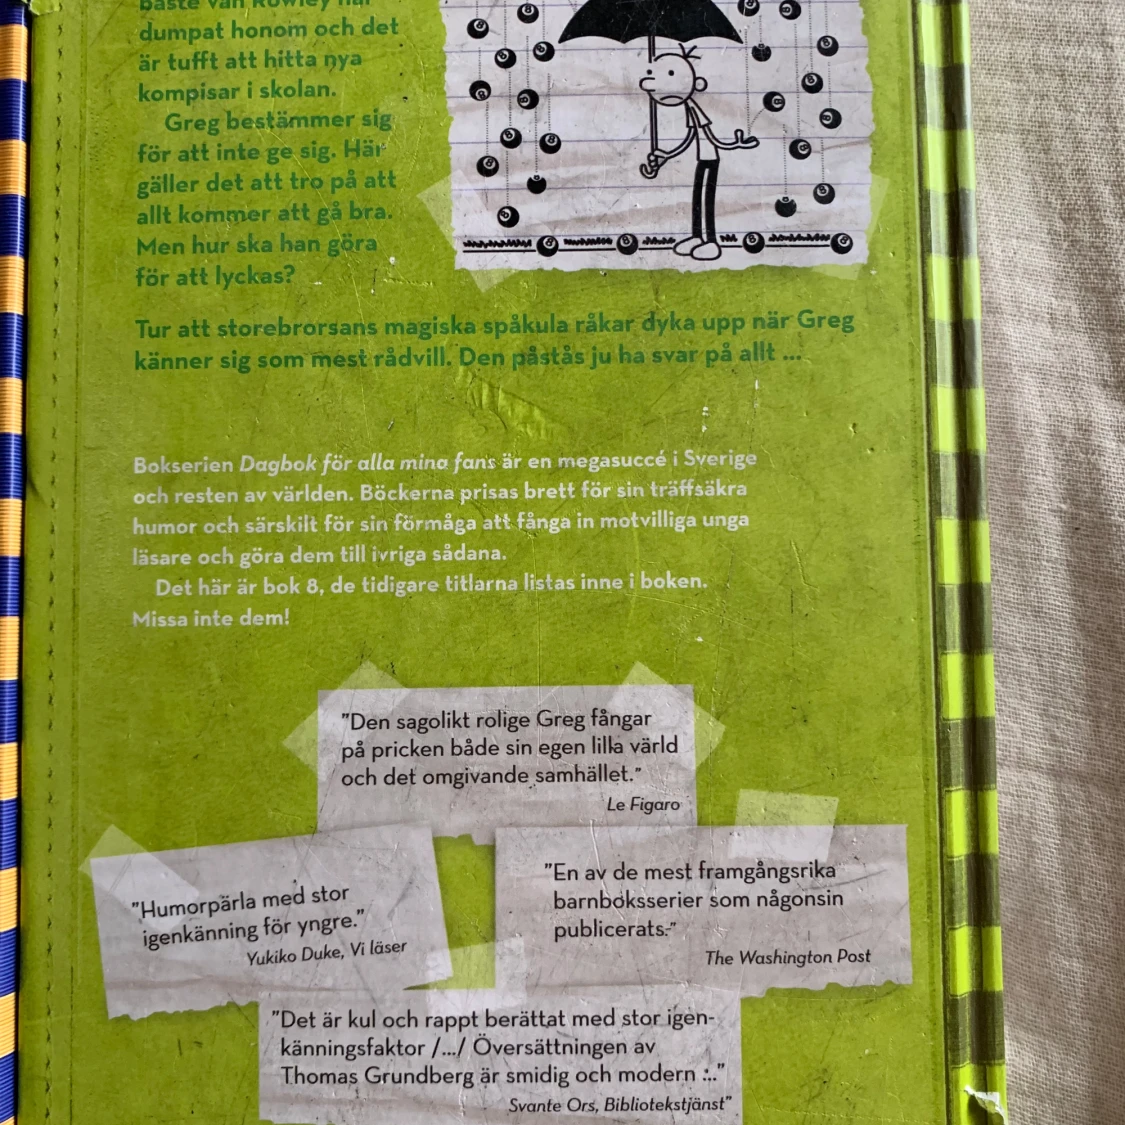 bäste vän Rowley har
dumpat honom och det
är tufft att hitta nya
kompisar i skolan.
Greg bestämmer sig
för att inte ge sig. Här
gäller det att tro på att
allt kommer att gå bra.
Men hur ska han göra
för att lyckas?
Tur att storebrorsans magiska spåkula råkar dyka upp när Greg
känner sig som mest rådvill. Den påstås ju ha svar på allt ...
Bokserien Dagbok för alla mina fans är en megasuccé i Sverige
och resten av världen. Böckerna prisas brett för sin träffsäkra
humor och särskilt för sin förmåga att fånga in motvilliga unga
läsare och göra dem till ivriga sådana.
Det här är bok 8, de tidigare titlarna listas inne i boken.
Missa inte dem!
"Den sagolikt rolige Greg fångar
på pricken både sin egen lilla värld
och det omgivande samhället."
Le Figaro
"Humorpärla med stor
igenkänning för yngre."
Yukiko Duke, Vi läser
"En av de mest framgångsrika
barnboksserier som någonsin
publicerats."
The Washington Post
"Det är kul och rappt berättat med stor igen-
känningsfaktor /.../ Översättningen av
Thomas Grundberg är smidig och modern ..."
Svante Ors, Bibliotekstjänst"